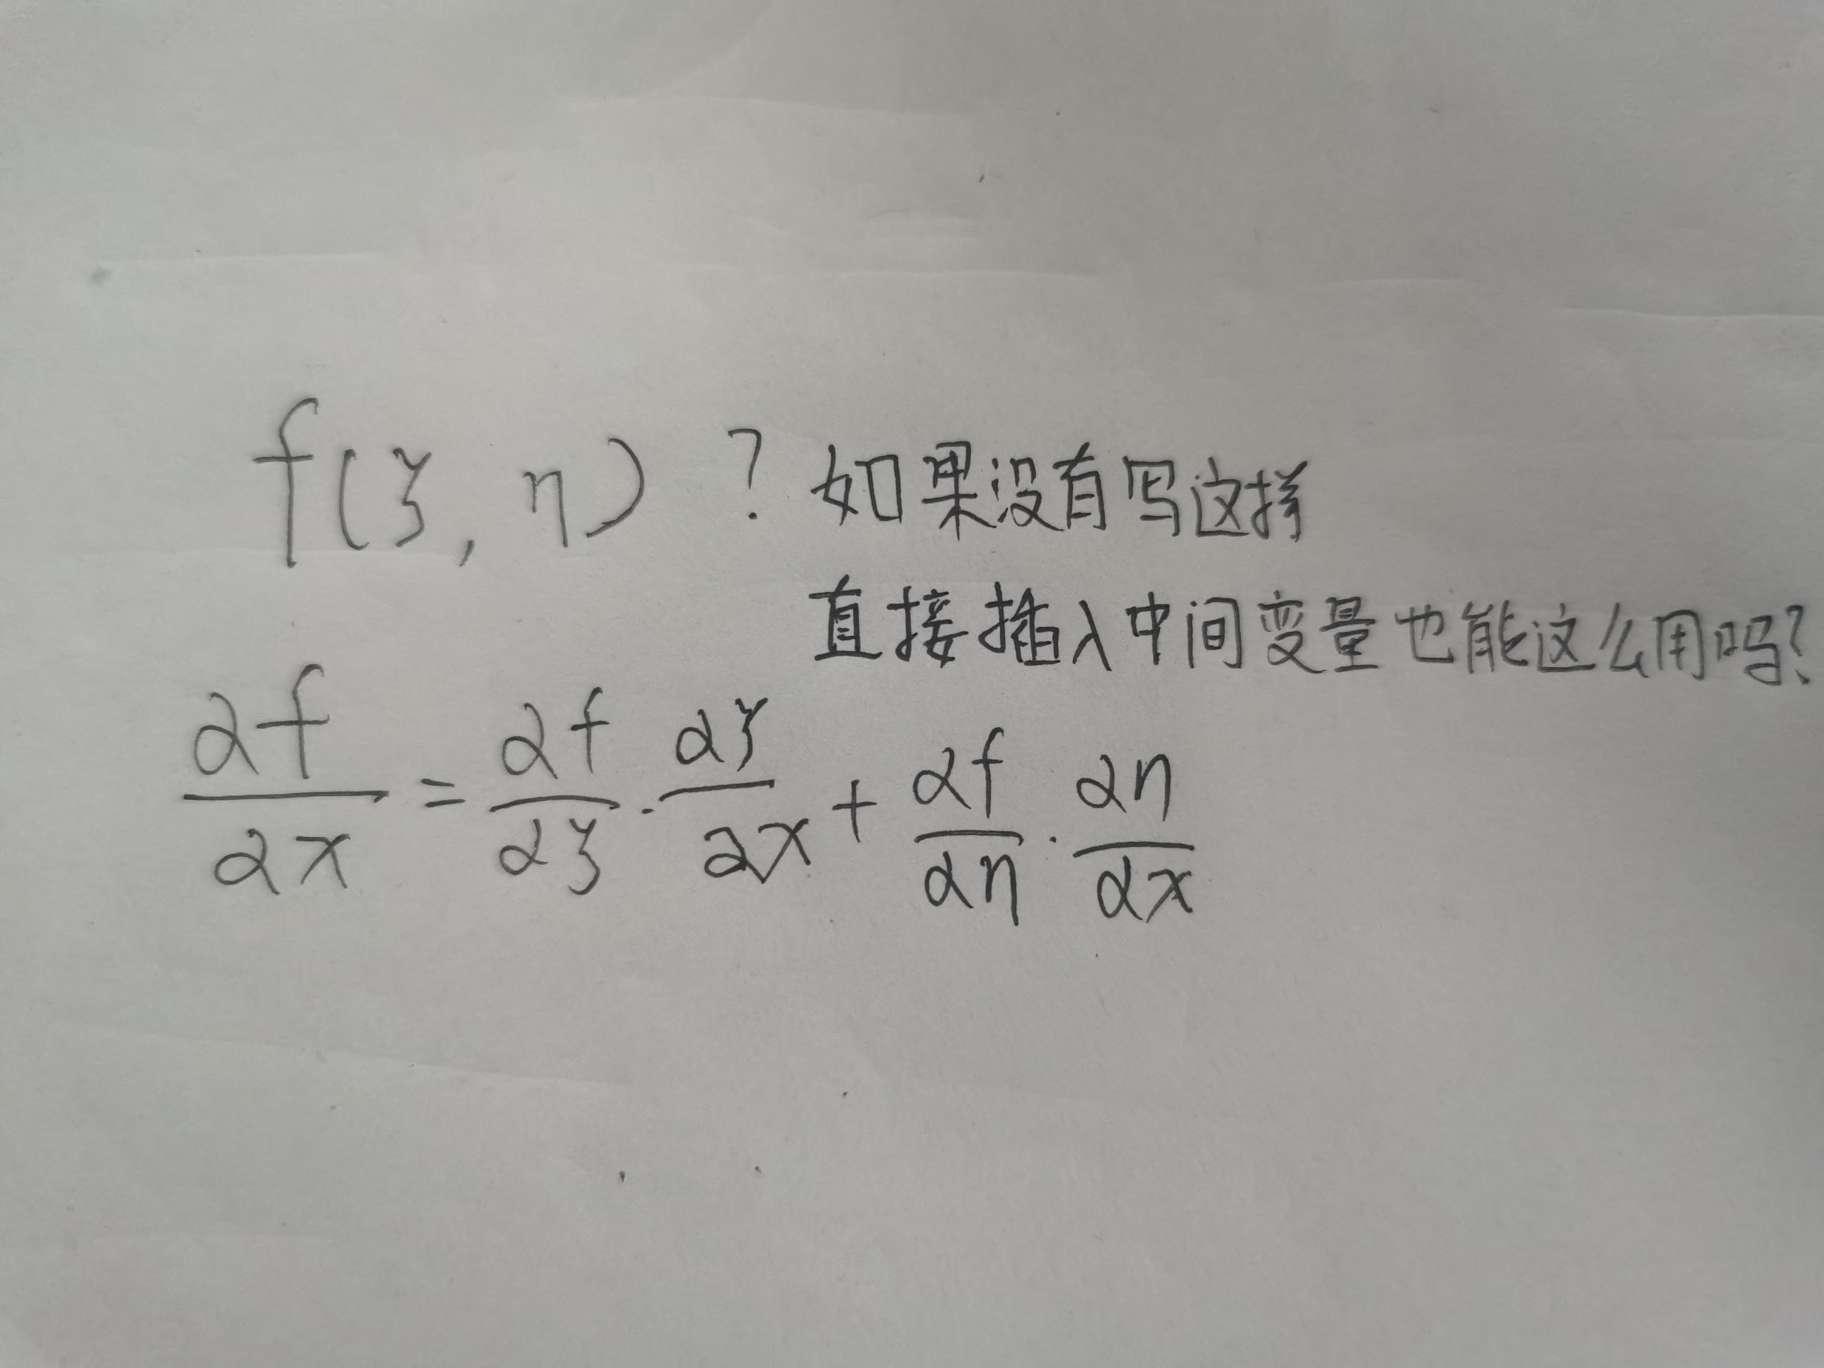 f(ξ, η) ? 如果没有写这样
直接插入中间变量也能这么用吗?
∂f/∂x = ∂f/∂ξ · ∂ξ/∂x + ∂f/∂η · ∂η/∂x